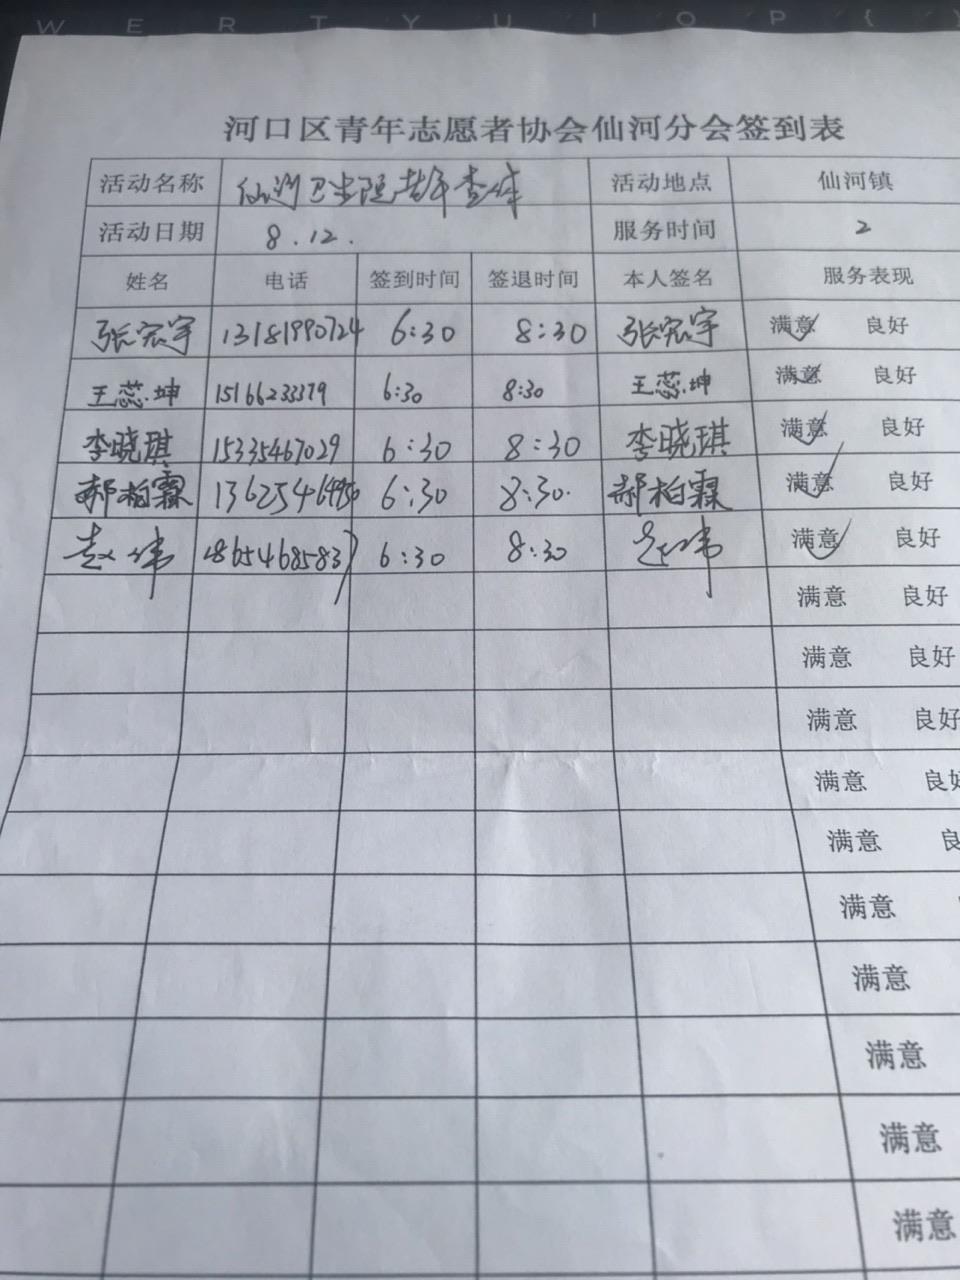 W E R T Y U I O P {
河口区青年志愿者协会仙河分会签到表
活动名称 仙河卫生院老年查体 活动地点 仙河镇
活动日期 8.12. 服务时间 2
姓名 电话 签到时间 签退时间 本人签名 服务表现
张宏宇 13181990724 6:30 8:30 张宏宇 满意 良好
王蕊坤 15166233379 6:30 8:30 王蕊坤 满意 良好
李晓琪 15335467029 6:30 8:30 李晓琪 满意 良好
郝柏霖 6:30 8:30. 郝柏霖 满意 良好
赵伟 18654685837 6:30 8:30 赵伟 满意 良好
满意 良好
满意 良好
满意 良好
满意 良好
满意 良
满意
满意
满意
满意
满意